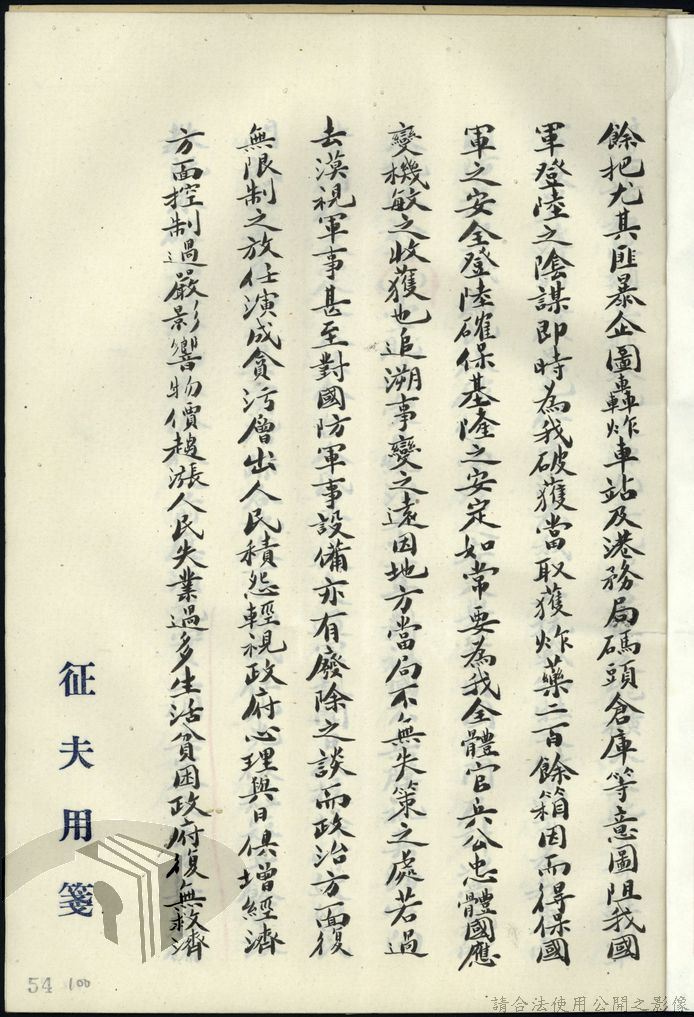 餘把尤其匪暴企圖轟炸車站及港務局碼頭倉庫等意圖阻我國
軍登陸之陰謀即時為我破獲當取獲炸藥二百餘箱因而得保國
軍之安全登陸確保基隆之安定如常要為我全體官兵公忠體國應
變機敏之收獲也追溯事變之遠因地方當局不無失策之處若過
去漠視軍事甚至對國防軍事設備亦有廢除之談而政治方面復
無限制之放任演成貪污層出人民積怨輕視政府心理與日俱增經濟
方面控制過嚴影響物價趨漲人民失業過多生活貧困政府復無救濟
征夫用箋
54 100
請合法使用公開之影像